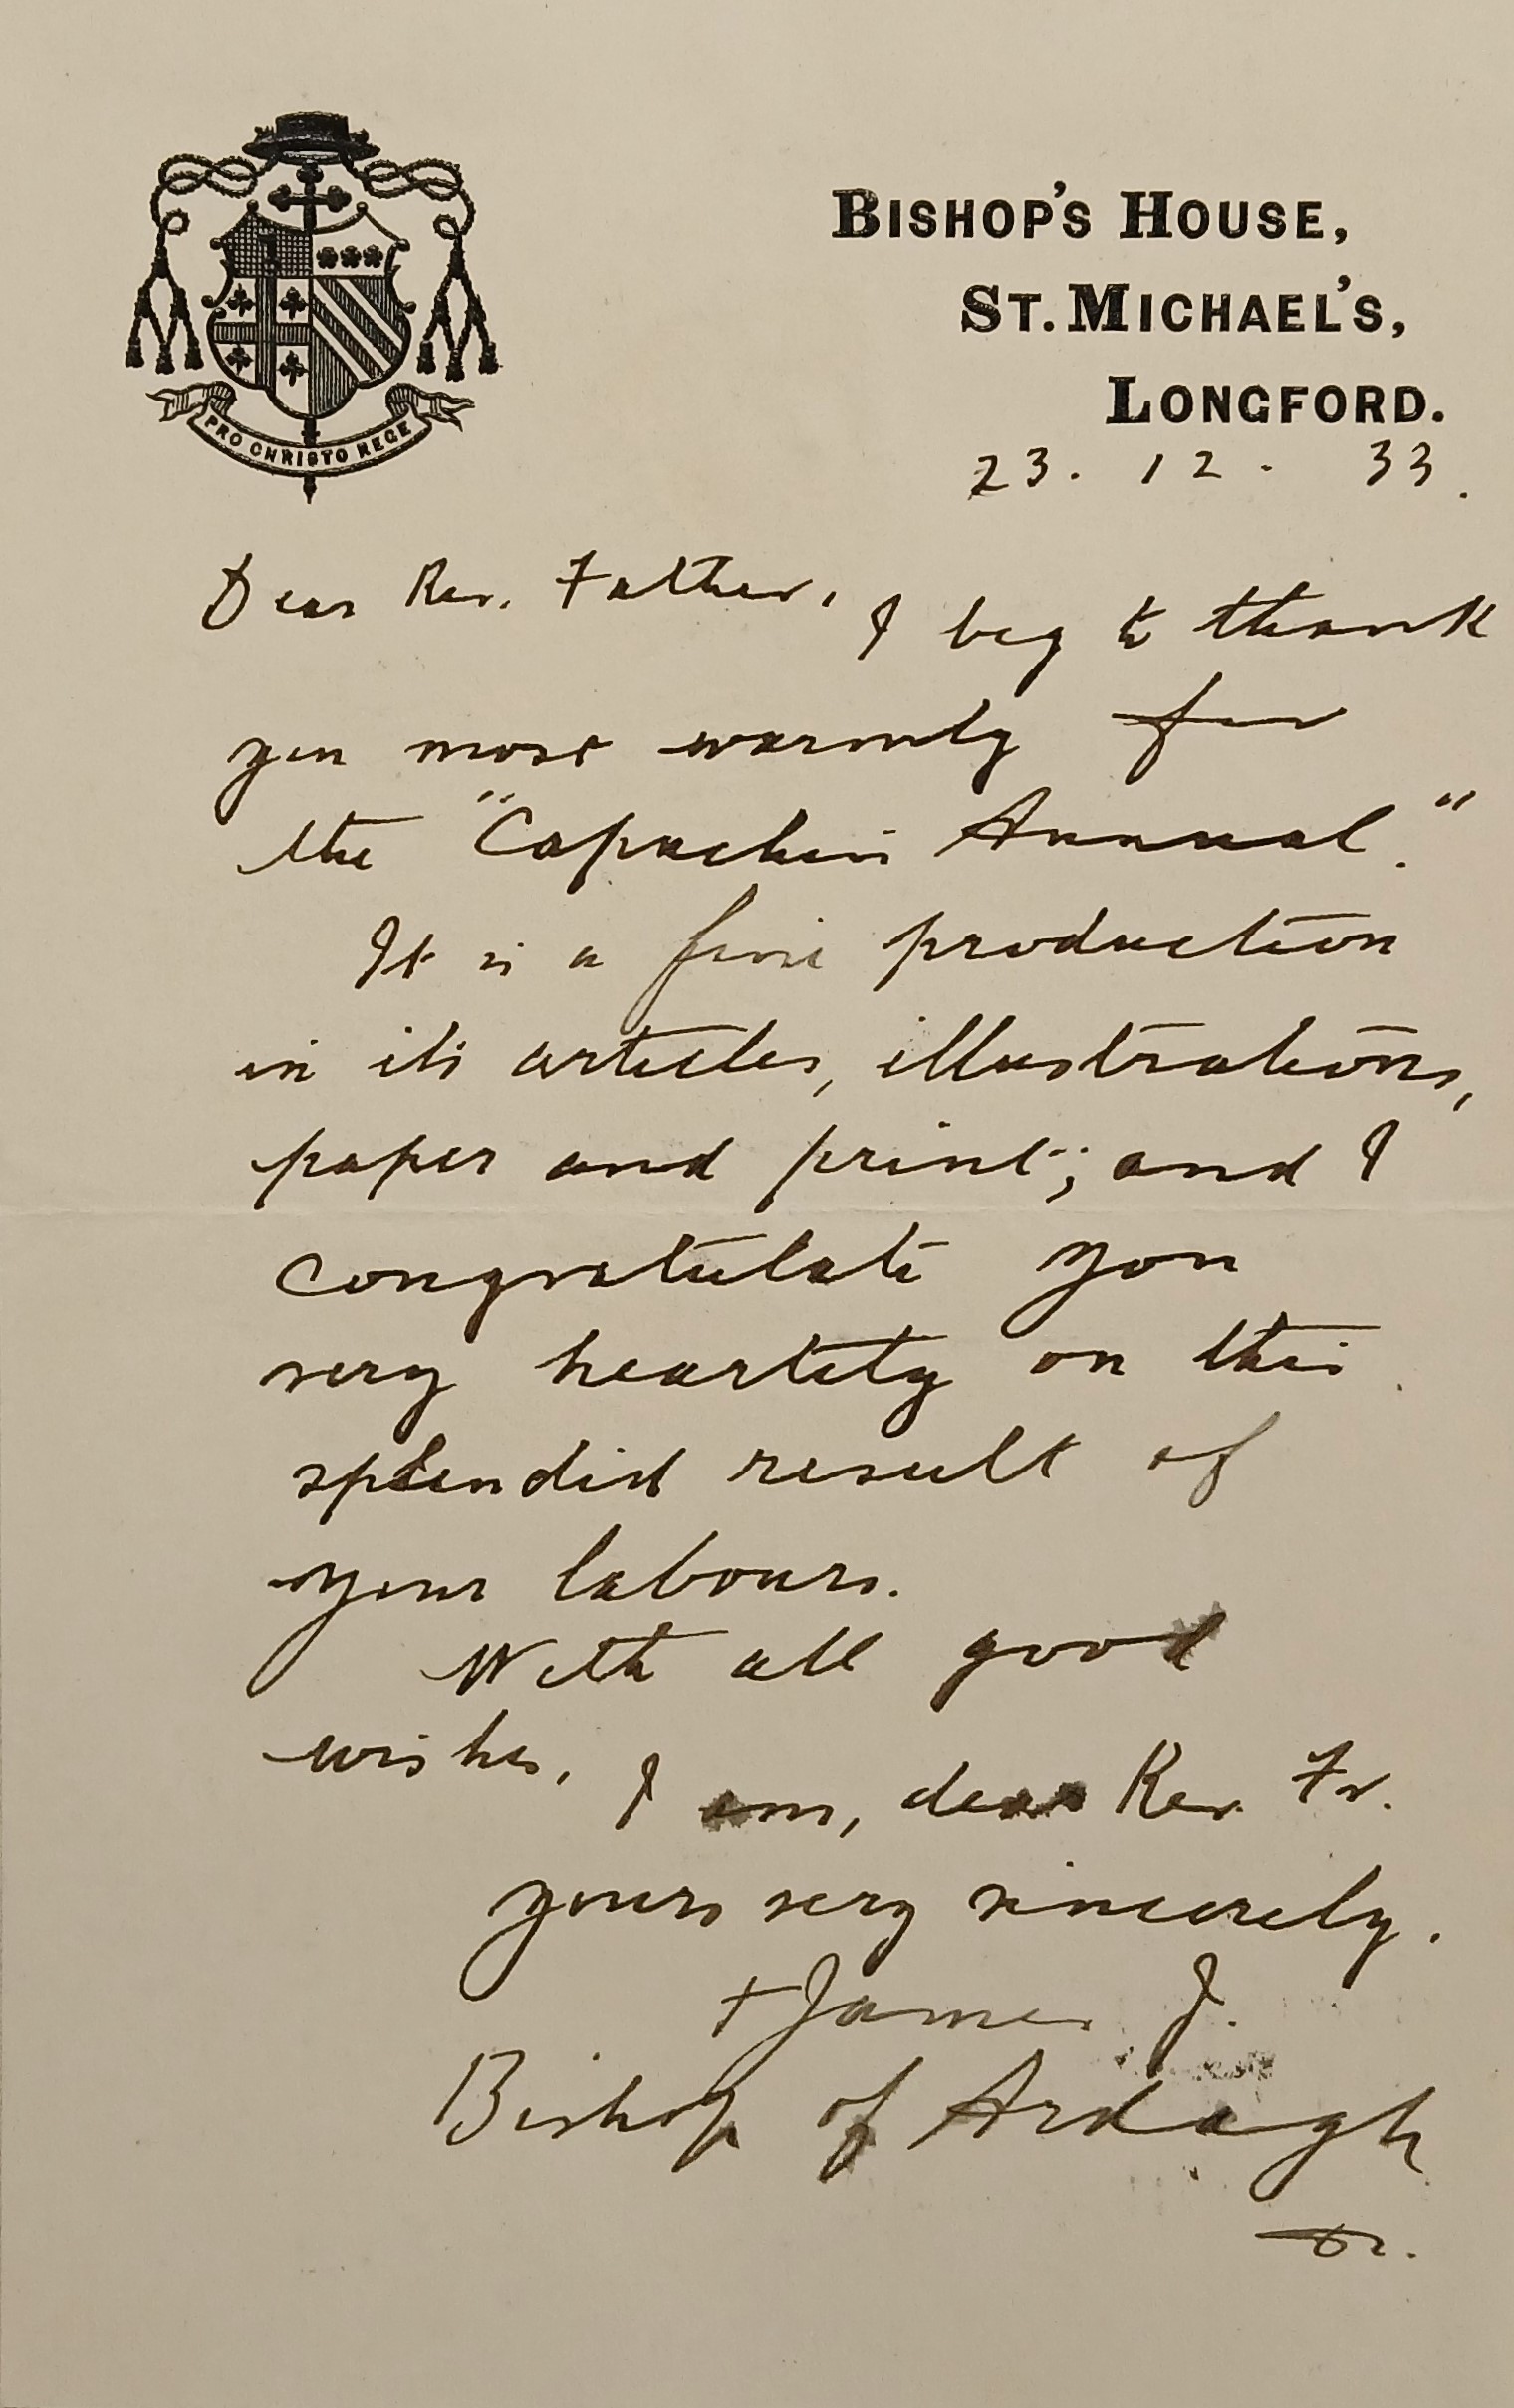 PRO CHRISTO REGE
BISHOP'S HOUSE,
ST. MICHAEL'S,
LONGFORD.
23. 12. 33.
Dear Rev. Father,
I beg to thank
you most warmly for
the "Capuchin Annual."
It is a fine production
in its articles, illustrations,
paper and print; and I
congratulate you
very heartily on this
splendid result of
your labours.
With all good
wishes, I am, dear Rev. Fr.
yours very sincerely.
+ James J.
Bishop of Ardagh